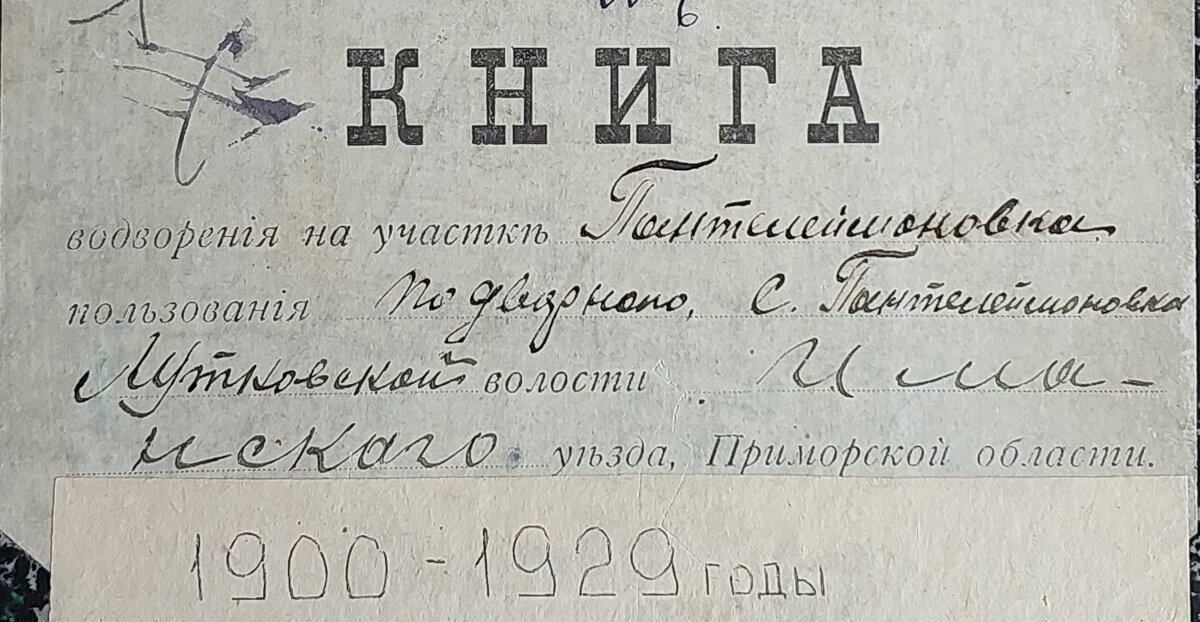 КНИГА
водворенія на участкѣ Пантелеймоновка
пользованія подворного, с. Пантелеймоновка
Лутковской волости Има-
нскаго уѣзда, Приморской области.
1900-1929 годы